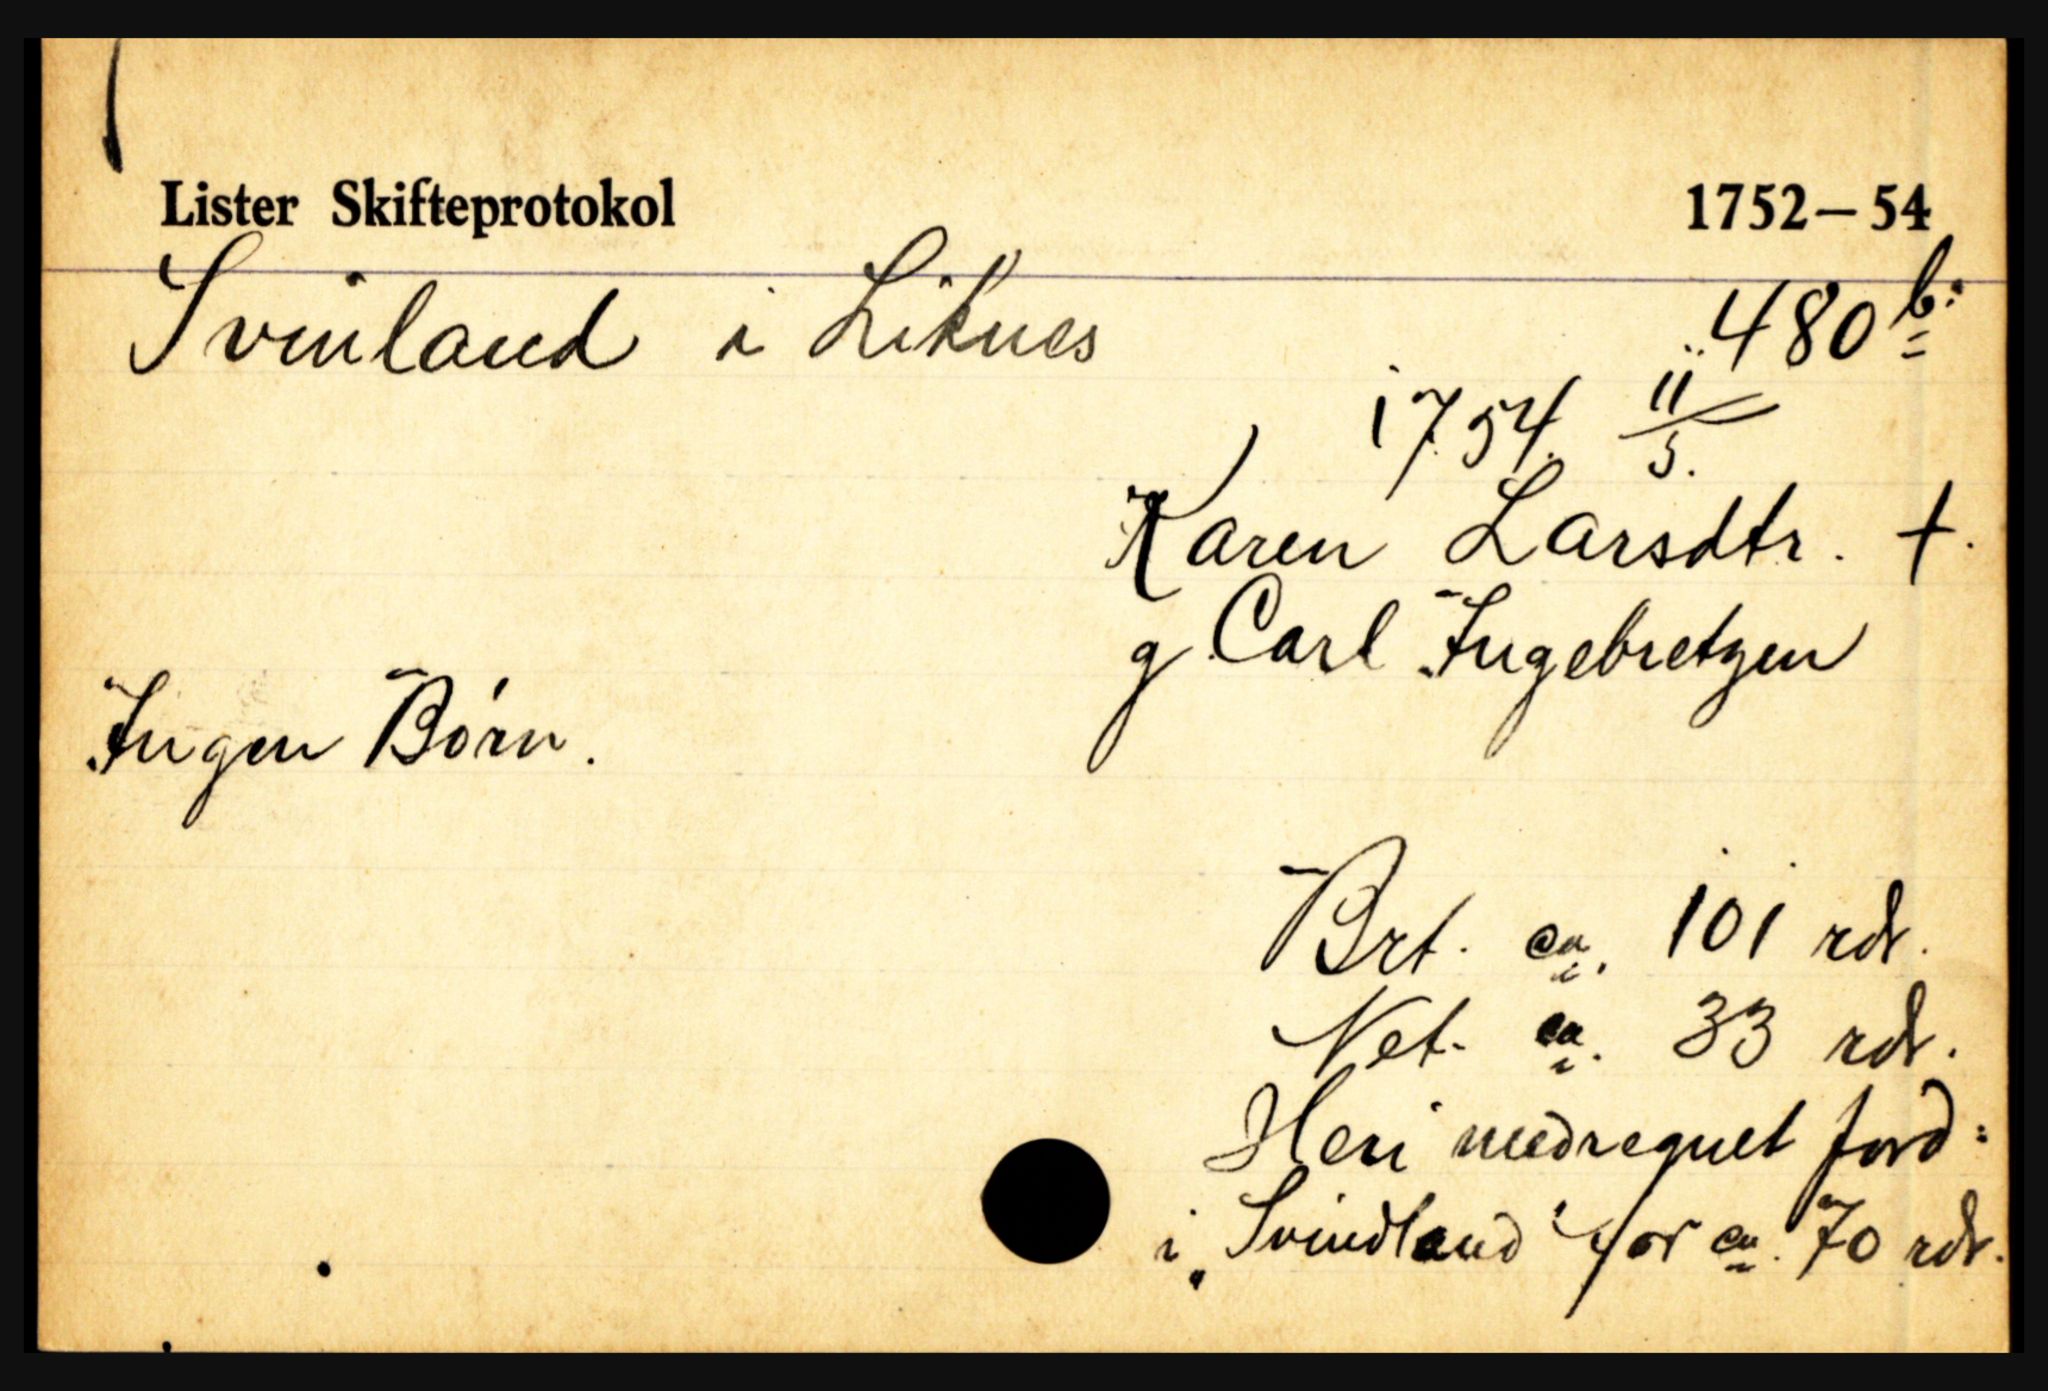 Lister Skifteprotokol 1752–54
Svinland i Liknes 480 b.
1754. 11/5.
Karen Larsdtr. †.
g. Carl Ingebretzen
Ingen Børn.
Brt. ca. 101 rdr.
Net. ca. 33 rdr.
Heri medregnet jord:
i „Svindland“ for ca. 70 rdr.